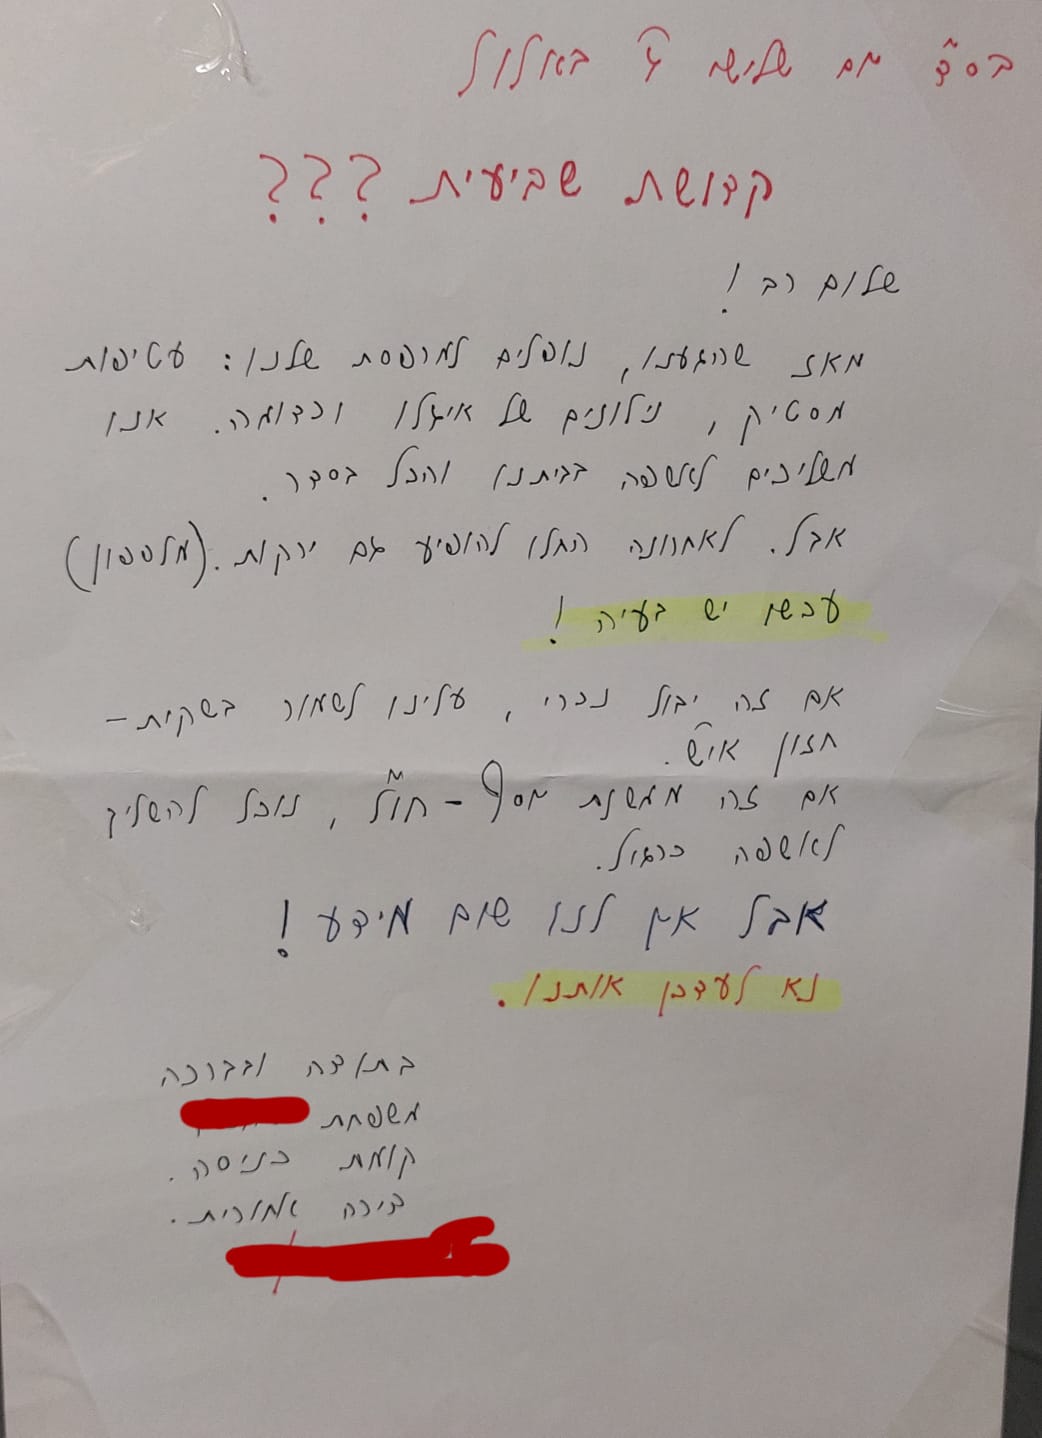 בס"ד יום שלישי ג' באלול
קדושת שביעית ???
שלום רב !
מאז שהגענו, נופלים למרפסת שלנו: עטיפות
מסטיק, ניילונים של איגלו וכדומה. אנו
משליכים לאשפה בביתנו והכל בסדר.
אבל. לאחרונה החלו להופיע גם ירקות. (מלפפון)
עכשיו יש בעיה !
אם זה יבול נכרי, עלינו לשמור בשקית -
חזון אי"ש.
אם זה ממשנת יוסף - חו"ל, נוכל להשליך
לאשפה כרגיל.
אבל אין לנו שום מידע !
נא לעדכן אותנו.
בתודה ובברכה
משפחת
קומת כניסה.
דירה אחורית.